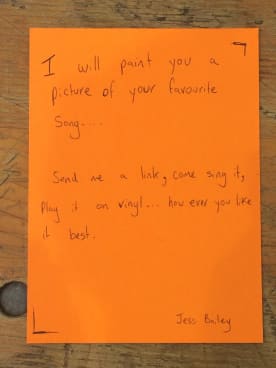 I will paint you a
picture of your favourite
Song....
Send me a link, come sing it,
Play it on vinyl... how ever you like
it best.
Jess Bailey